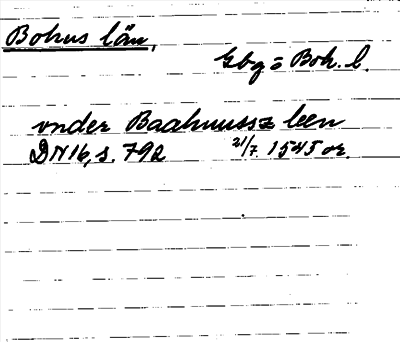 Bohus län,
Gbg o Boh. l.
vnder Baahuussz leen
DN 16, s. 792 21/7 1545 or.